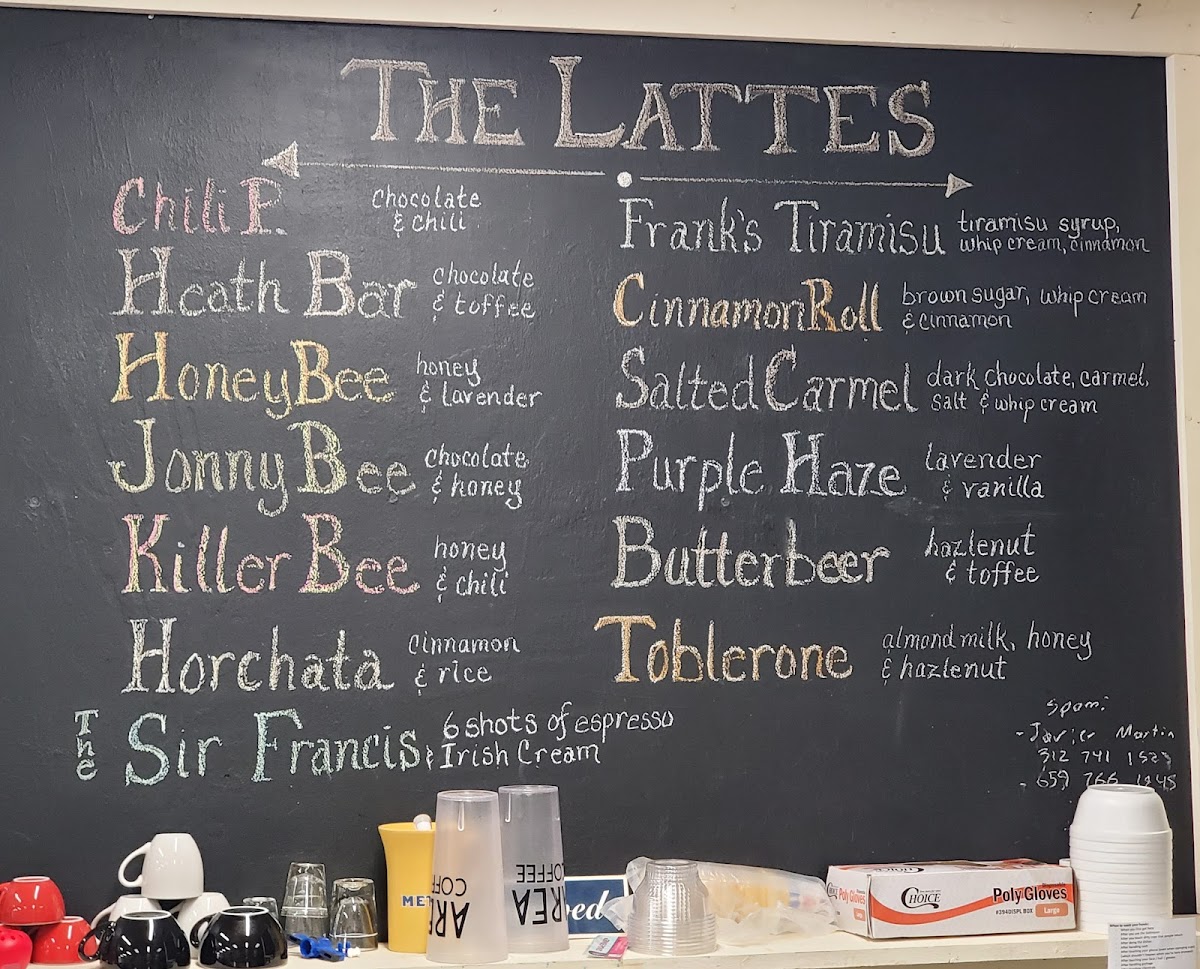 THE LATTES
Chili P.
chocolate
& chili
Heath Bar
chocolate
& toffee
HoneyBee
honey
& lavender
Jonny Bee
chocolate
& honey
Killer Bee
honey
& chili
Horchata
cinnamon
& rice
The Sir Francis
6 shots of espresso
& Irish Cream
Frank's Tiramisu
tiramisu syrup,
whip cream, cinnamon
CinnamonRoll
brown sugar, whip cream
& cinnamon
Salted Carmel
dark chocolate, carmel,
salt & whip cream
Purple Haze
lavender
& vanilla
Butterbeer
hazlenut
& toffee
Toblerone
almond milk, honey
& hazlenut
Spam:
- Javier Martin
312 741
- 659 766
ME
AREA
COFFEE
AREA
COFFEE
Poly Gloves
CHOICE
Poly Gloves
#394DISPL BOX
Large